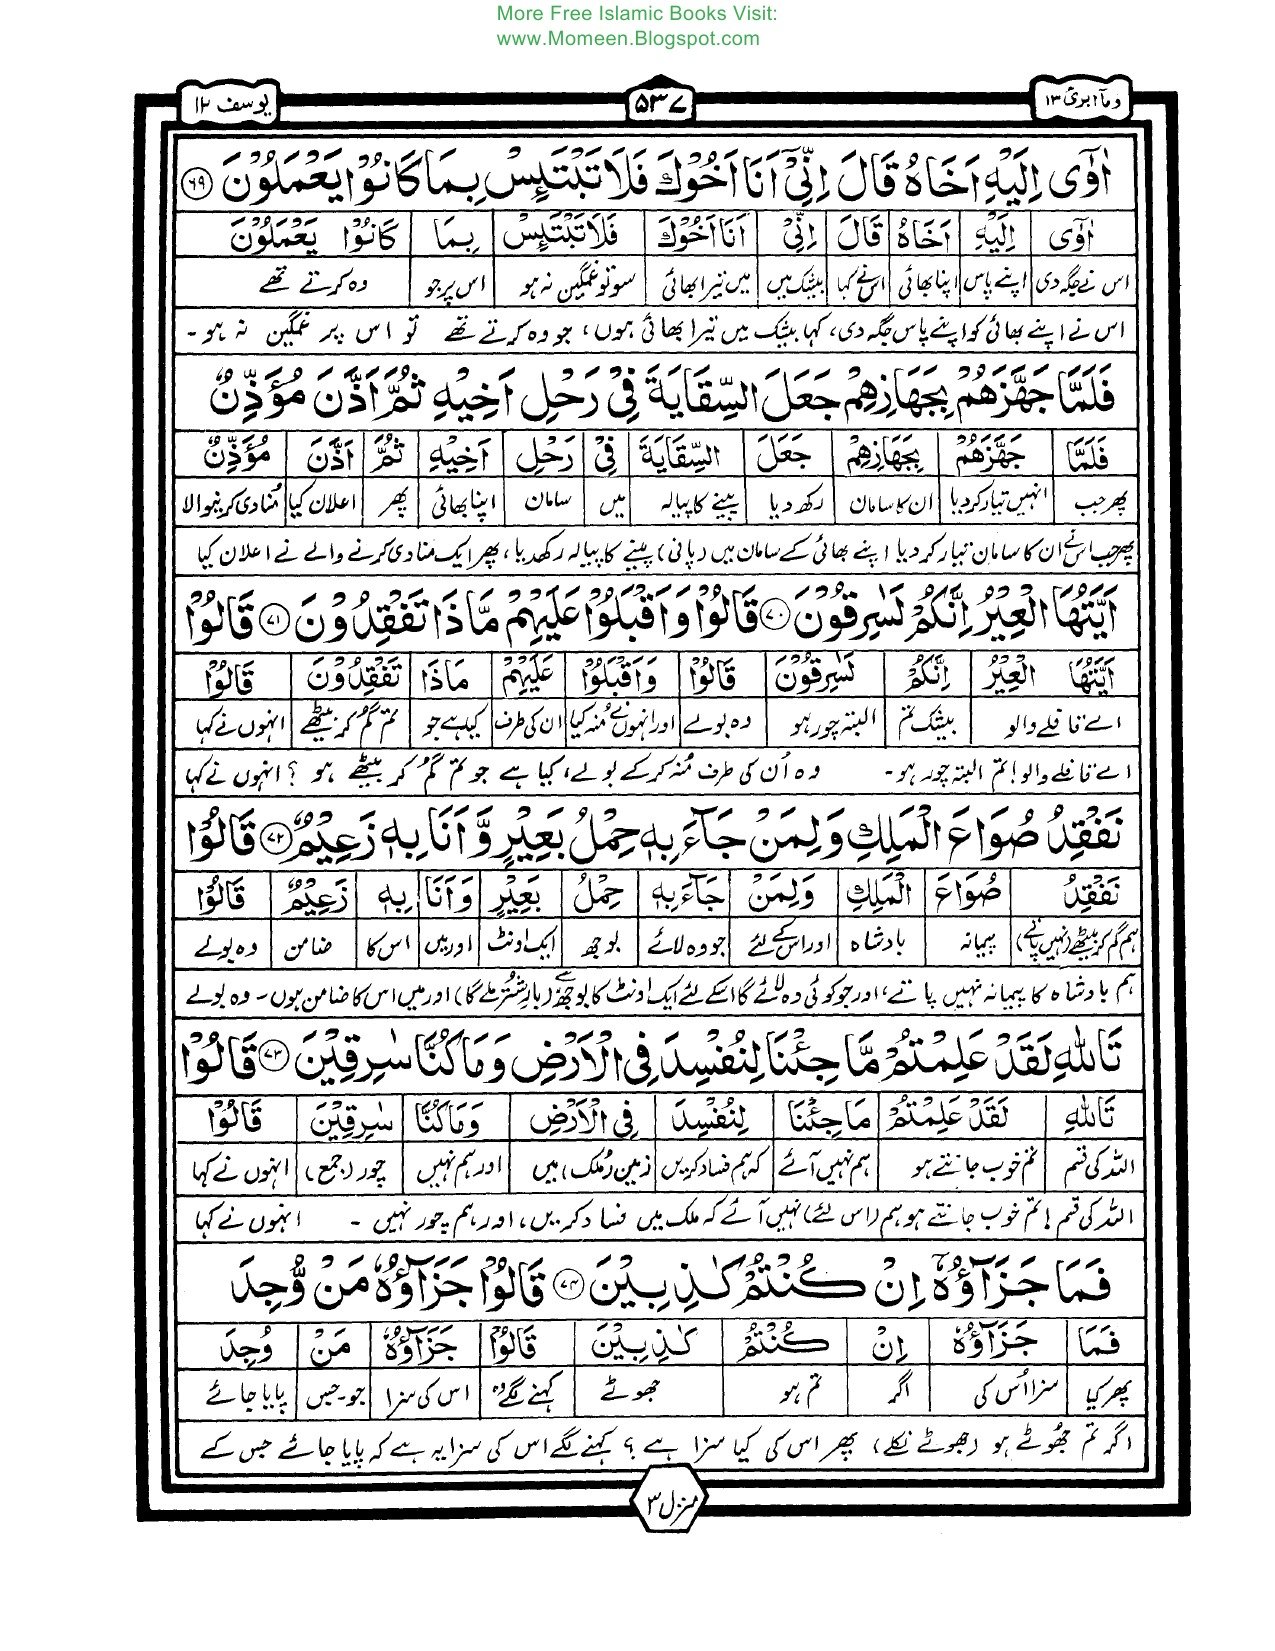 More Free Islamic Books Visit:
www.Momeen.Blogspot.com
ومآ ابرئ ۱۳
۵۳۷
یوسف ۱۲
اٰوٰۤى اِلَیْهِ اَخَاهُ قَالَ اِنِّیْۤ اَنَا اَخُوْكَ فَلَا تَبْتَئِسْ بِمَا كَانُوْا یَعْمَلُوْنَ ۶۹
اٰوٰۤى اِلَیْهِ اَخَاهُ قَالَ اِنِّیْۤ اَنَا اَخُوْكَ فَلَا تَبْتَئِسْ بِمَا كَانُوْا یَعْمَلُوْنَ
اس نے جگہ دی اپنے پاس اپنا بھائی اسنے کہا بیشک میں میں تیرا بھائی سو تو غمگین نہ ہو اس پر جو وہ کرتے تھے
اس نے اپنے بھائی کو اپنے پاس جگہ دی، کہا بیشک میں تیرا بھائی ہوں، جو وہ کرتے تھے تو اس پر غمگین نہ ہو۔
فَلَمَّا جَهَّزَهُمْ بِجَهَازِهِمْ جَعَلَ السِّقَایَةَ فِیْ رَحْلِ اَخِیْهِ ثُمَّ اَذَّنَ مُؤَذِّنٌ
فَلَمَّا جَهَّزَهُمْ بِجَهَازِهِمْ جَعَلَ السِّقَایَةَ فِیْ رَحْلِ اَخِیْهِ ثُمَّ اَذَّنَ مُؤَذِّنٌ
پھر جب انہیں تیار کر دیا ان کا سامان رکھ دیا پینے کا پیالہ میں سامان اپنا بھائی پھر اعلان کیا مُنادی کرنیوالا
پھر جب اسنے ان کا سامان تیار کر دیا اپنے بھائی کے سامان میں (پانی) پینے کا پیالہ رکھدیا، پھر ایک منادی کرنے والے نے اعلان کیا
اَیَّتُهَا الْعِیْرُ اِنَّكُمْ لَسٰرِقُوْنَ ۷۰ قَالُوْا وَاَقْبَلُوْا عَلَیْهِمْ مَّاذَا تَفْقِدُوْنَ ۷۱ قَالُوْا
اَیَّتُهَا الْعِیْرُ اِنَّكُمْ لَسٰرِقُوْنَ قَالُوْا وَاَقْبَلُوْا عَلَیْهِمْ مَاذَا تَفْقِدُوْنَ قَالُوْا
اے قافلے والو بیشک تم البتہ چور ہو وہ بولے اور انہوں نے مُنہ کیا ان کی طرف کیا ہے جو تم گم کر بیٹھے انہوں نے کہا
اے قافلے والو! تم البتہ چور ہو۔ وہ اُن کی طرف مُنہ کر کے بولے، کیا ہے جو تم گم کر بیٹھے ہو؟ انہوں نے کہا
نَفْقِدُ صُوَاعَ الْمَلِكِ وَلِمَنْ جَآءَ بِهٖ حِمْلُ بَعِیْرٍ وَّاَنَا بِهٖ زَعِیْمٌ ۷۲ قَالُوْا
نَفْقِدُ صُوَاعَ الْمَلِكِ وَلِمَنْ جَآءَ بِهٖ حِمْلُ بَعِیْرٍ وَاَنَا بِهٖ زَعِیْمٌ قَالُوْا
ہم گم کر بیٹھے (نہیں پاتے) پیمانہ بادشاہ اور اس کے لئے جو وہ لائے بوجھ ایک اونٹ اور میں اس کا ضامن وہ بولے
ہم بادشاہ کا پیمانہ نہیں پاتے، اور جو کوئی وہ لائے گا اسکے لئے ایک اونٹ کا بوجھ ہے (بارِ شتر ملے گا) اور میں اس کا ضامن ہوں۔ وہ بولے
تَاللّٰهِ لَقَدْ عَلِمْتُمْ مَّا جِئْنَا لِنُفْسِدَ فِی الْاَرْضِ وَمَا كُنَّا سٰرِقِیْنَ ۷۳ قَالُوْا
تَاللّٰهِ لَقَدْ عَلِمْتُمْ مَا جِئْنَا لِنُفْسِدَ فِی الْاَرْضِ وَمَا كُنَّا سٰرِقِیْنَ قَالُوْا
اللہ کی قسم تم خوب جانتے ہو ہم نہیں آئے کہ ہم فساد کریں زمین (مُلک) میں اور ہم نہیں چور (جمع) انہوں نے کہا
اللہ کی قسم! تم خوب جانتے ہو ہم (اس لئے) نہیں آئے کہ ملک میں فساد کریں، اور ہم چور نہیں۔ انہوں نے کہا
فَمَا جَزَآؤُهٗۤ اِنْ كُنْتُمْ كٰذِبِیْنَ ۷۴ قَالُوْا جَزَآؤُهٗ مَنْ وُّجِدَ
فَمَا جَزَآؤُهٗ اِنْ كُنْتُمْ كٰذِبِیْنَ قَالُوْا جَزَآؤُهٗ مَنْ وُجِدَ
پھر کیا سزا اُس کی اگر تم ہو جھوٹے کہنے لگے وہ اس کی سزا جو۔ جس پایا جائے
اگر تم جھُوٹے ہو (جھوٹے نکلے) پھر اس کی کیا سزا ہے؟ کہنے لگے اس کی سزا یہ ہے کہ پایا جائے جس کے
منزل ۳